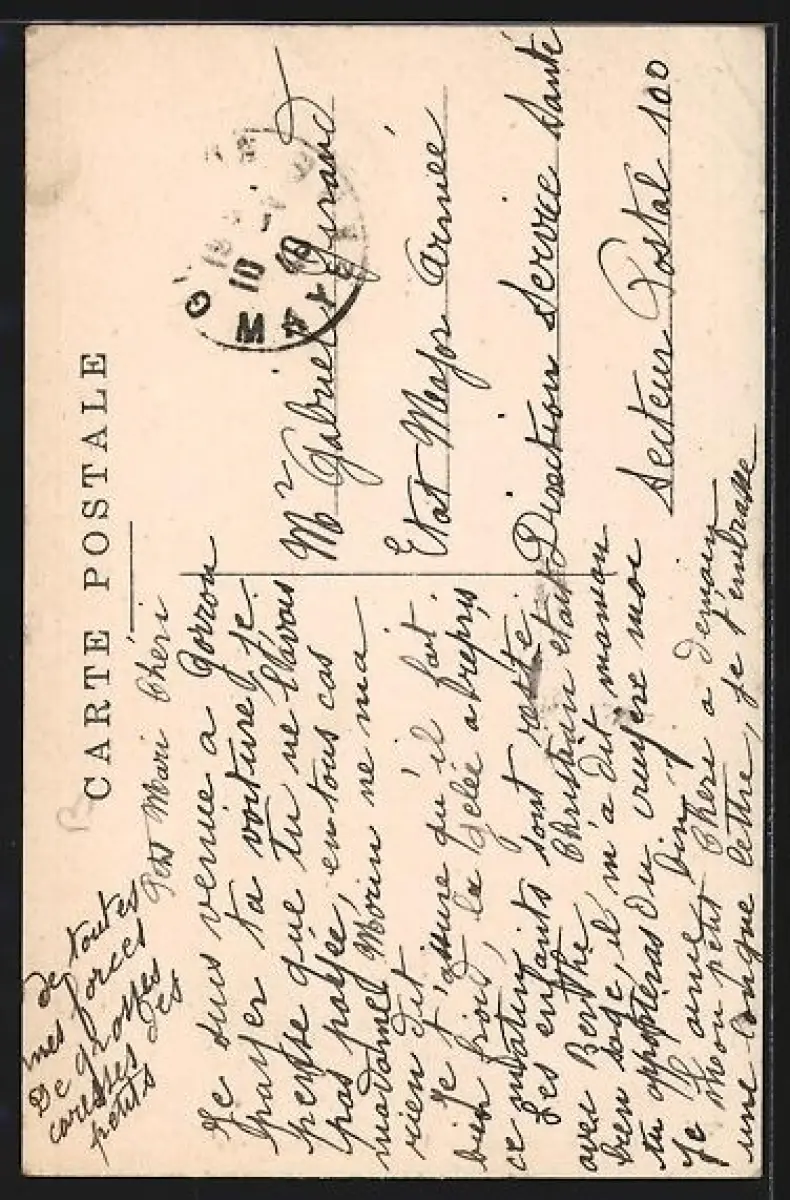 CARTE POSTALE
Petit Mari Chéri
Je suis venue a Gorron
payer ta voiture, je
pense que tu ne l'avais
pas payée, en tous cas
madame Morin ne m'a
rien dit
Je t'assure qu'il fait
bien froid, la gelée a repris
ce matin,
Les enfants sont resté
avec Berthe, Christian était
bien sage, il m'a dit maman
tu apporteras du gruyère moi
Je l'aime bien
Mon petit Chéri a demain
une longue lettre, je t'embrasse
de toutes
mes forces
De grosses
caresses des
petits
Mr Gabriel Girard
Etat Major Armée
Direction Service Santé
Secteur Postal 100
G
10
40
M